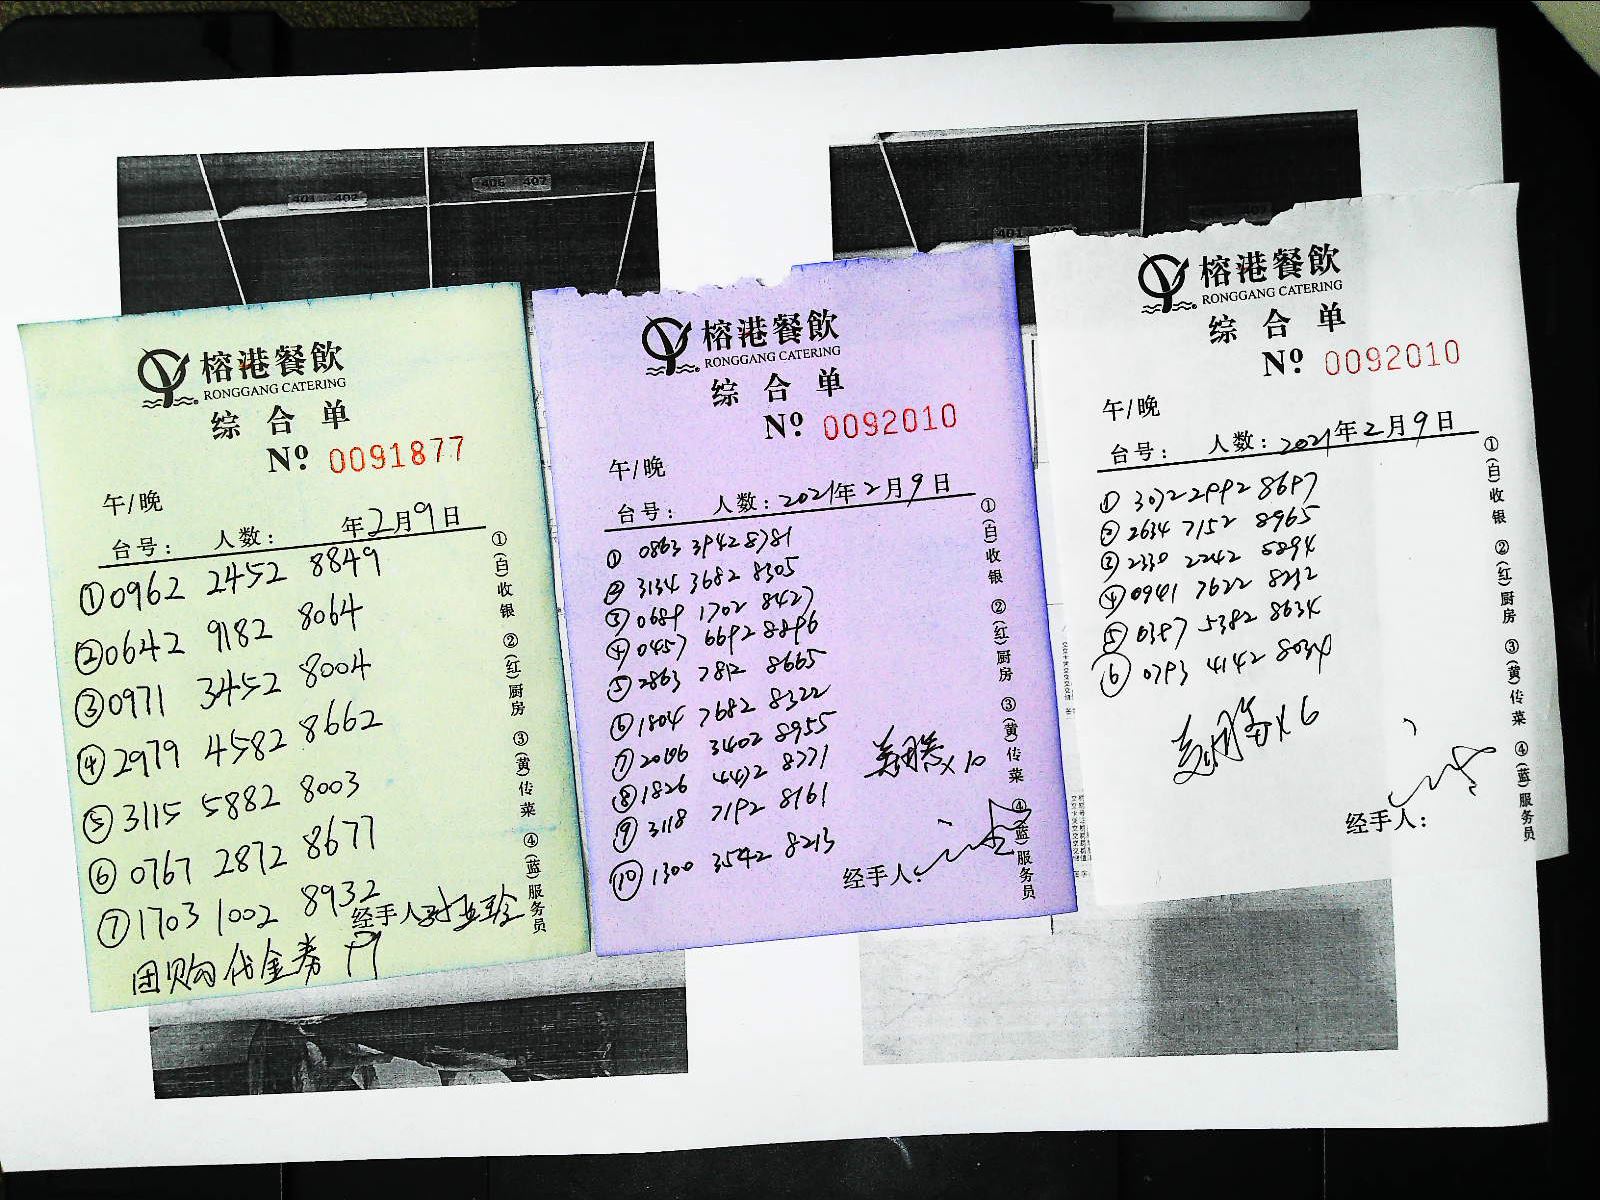 401 402
406 407
榕港餐飲
RONGGANG CATERING
综合单
Nº 0091877
午/晚
台号： 人数： 年2月9日
①0962 2452 8849
②0642 9182 8064
③0971 3452 8004
④2979 4582 8662
⑤3115 5882 8003
⑥0767 2872 8677
⑦1703 1002 8932
经手人
团购代金券
①(白)收银 ②(红)厨房 ③(黄)传菜 ④(蓝)服务员
榕港餐飲
RONGGANG CATERING
综合单
Nº 0092010
午/晚
台号： 人数：2021年2月9日
① 0863 3942 8781
② 3134 3682 8305
③ 0689 1702 8427
④ 0457 6692 8896
⑤ 2863 7812 8665
⑥ 1804 7682 8322
⑦ 2006 3402 8955
⑧ 1826 4492 8271
⑨ 3118 7192 8161
⑩ 1300 3542 8213
x10
经手人：
①(白)收银 ②(红)厨房 ③(黄)传菜 ④(蓝)服务员
401
榕港餐飲
RONGGANG CATERING
综合单
Nº 0092010
午/晚
台号： 人数：2021年2月9日
① 3072 2992 8697
② 2634 7152 8965
③ 2330 2242 8894
④ 0941 7622 8232
⑤ 0387 5382 8634
⑥ 0793 4142 8034
x6
经手人：
①(白)收银 ②(红)厨房 ③(黄)传菜 ④(蓝)服务员